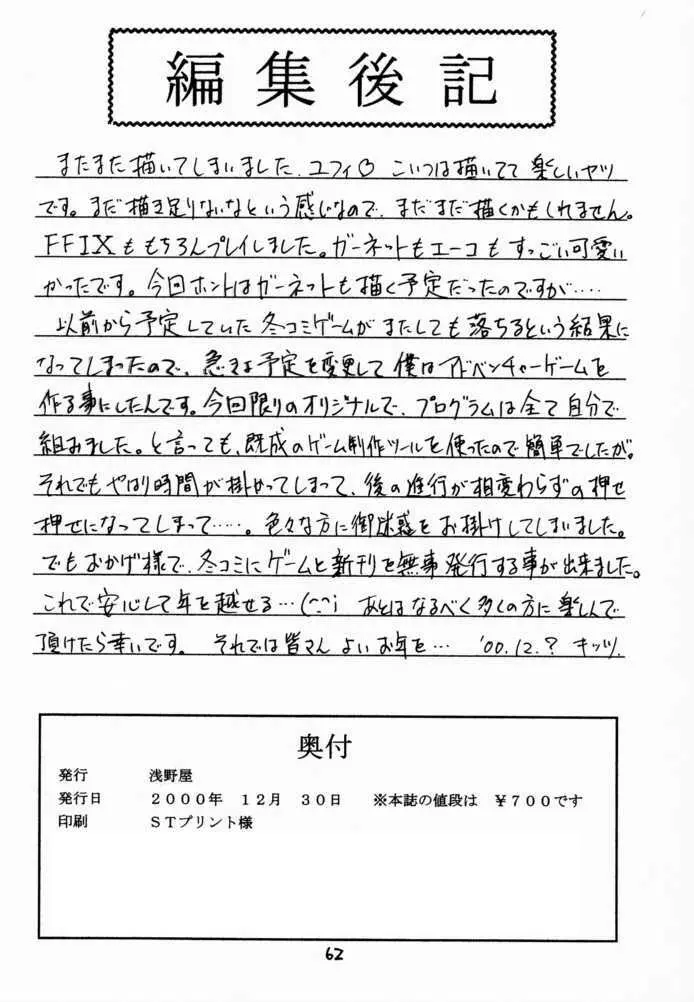 編集後記
またまた描いてしまいました、ユフィ♡ こいつは描いてて楽しいヤツ
です。まだ描き足りないなという感じなので、まだまだ描くかもしれません。
FFIXももちろんプレイしました。ガーネットもエーコもすっごい可愛い
かったです。今回ホントはガーネットも描く予定だったのですが‥‥
以前から予定していた冬コミゲームがまたしても落ちるという結果に
なってしまったので、急きょ予定を変更して僕はアドベンチャーゲームを
作る事にしたんです。今回限りのオリジナルで、プログラムは全て自分で
組みました。と言っても、既成のゲーム制作ツールを使ったので簡単でしたが。
それでもやはり時間が掛かってしまって、後の進行が相変わらずの押せ
押せになってしまって‥‥。色々な方に御迷惑をお掛けしてしまいました。
でもおかげ様で、冬コミにゲームと新刊を無事発行する事が出来ました。
これで安心して年を越せる…(^^)ゞ あとはなるべく多くの方に楽しんで
頂けたら幸いです。 それでは皆さん よいお年を… '00.12.? キッツ.
奥付
発行 浅野屋
発行日 2000年 12月 30日 ※本誌の値段は ¥700です
印刷 STプリント様
62